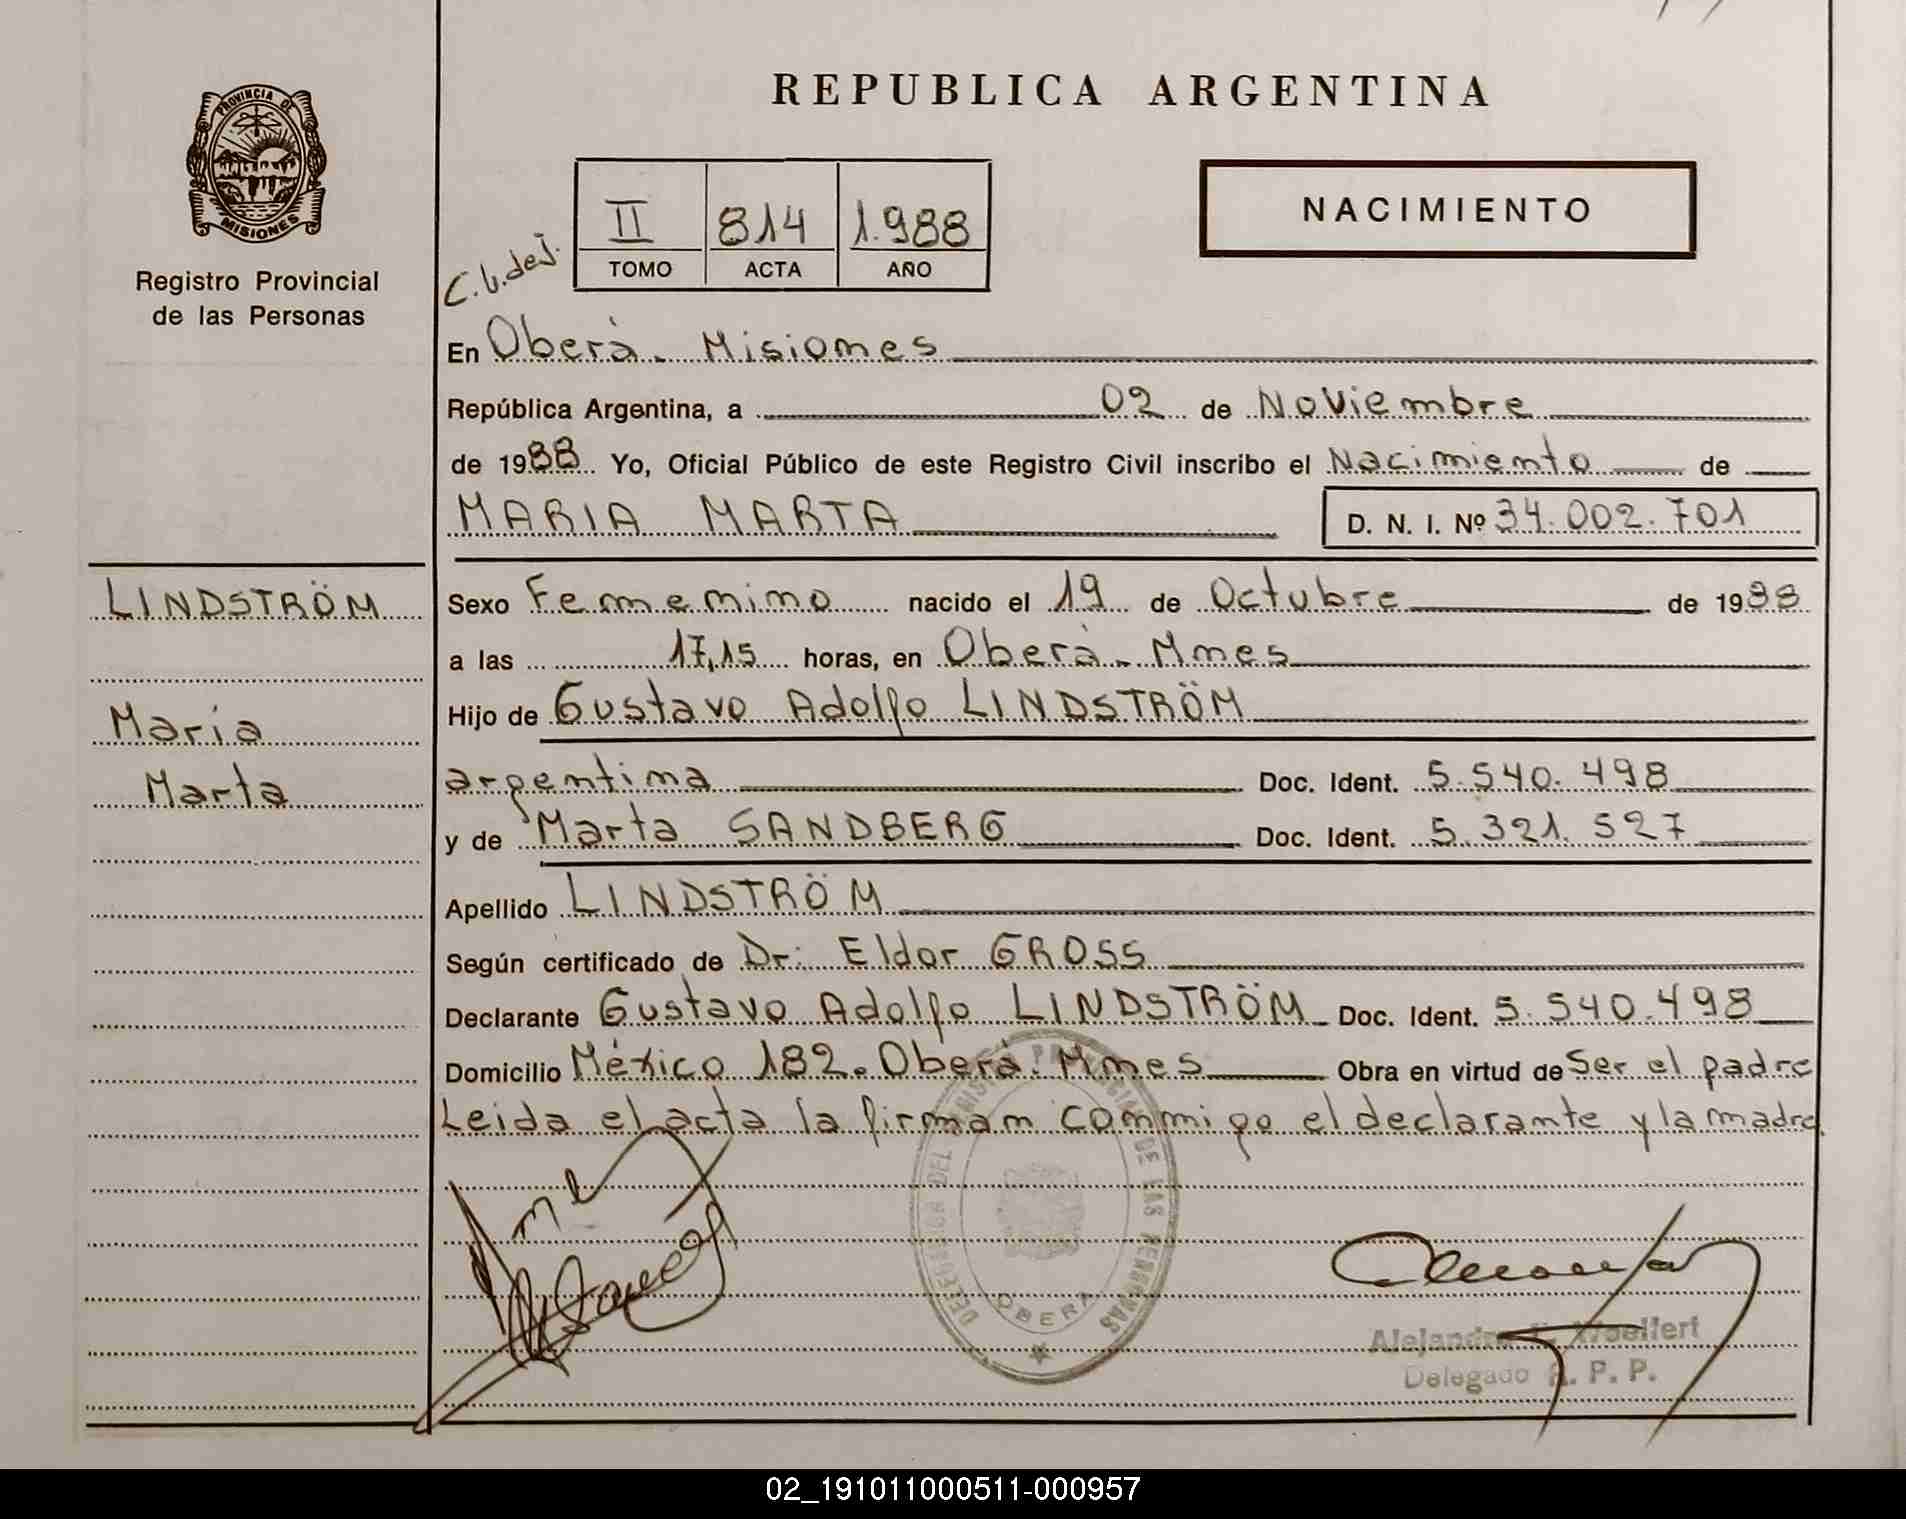 REPUBLICA ARGENTINA
PROVINCIA DE
MISIONES
Registro Provincial
de las Personas
II 814 1.988
TOMO ACTA AÑO
NACIMIENTO
En Oberà. Misiones
República Argentina, a 02 de Noviembre
de 1988 Yo, Oficial Público de este Registro Civil inscribo el Nacimiento de
MARIA MARTA D. N. I. Nº 34.002.701
LINDSTRÖM
Maria
Marta
Sexo Femenino nacido el 19 de Octubre de 1988
a las 17,15 horas, en Oberà. Mnes
Hijo de Gustavo Adolfo LINDSTRÖM
argentina Doc. Ident. 5.540.498
y de Marta SANDBERG Doc. Ident. 5.321.527
Apellido LINDSTRÖM
Según certificado de Dr: Eldor GROSS
Declarante Gustavo Adolfo LINDSTRÖM Doc. Ident. 5.540.498
Domicilio México 182. Oberà. Mnes Obra en virtud de Ser el padre
Leida el acta la firman conmigo el declarante y la madre.
DE LAS PERSONAS
OBERA
Delegado R. P. P.
02_191011000511-000957